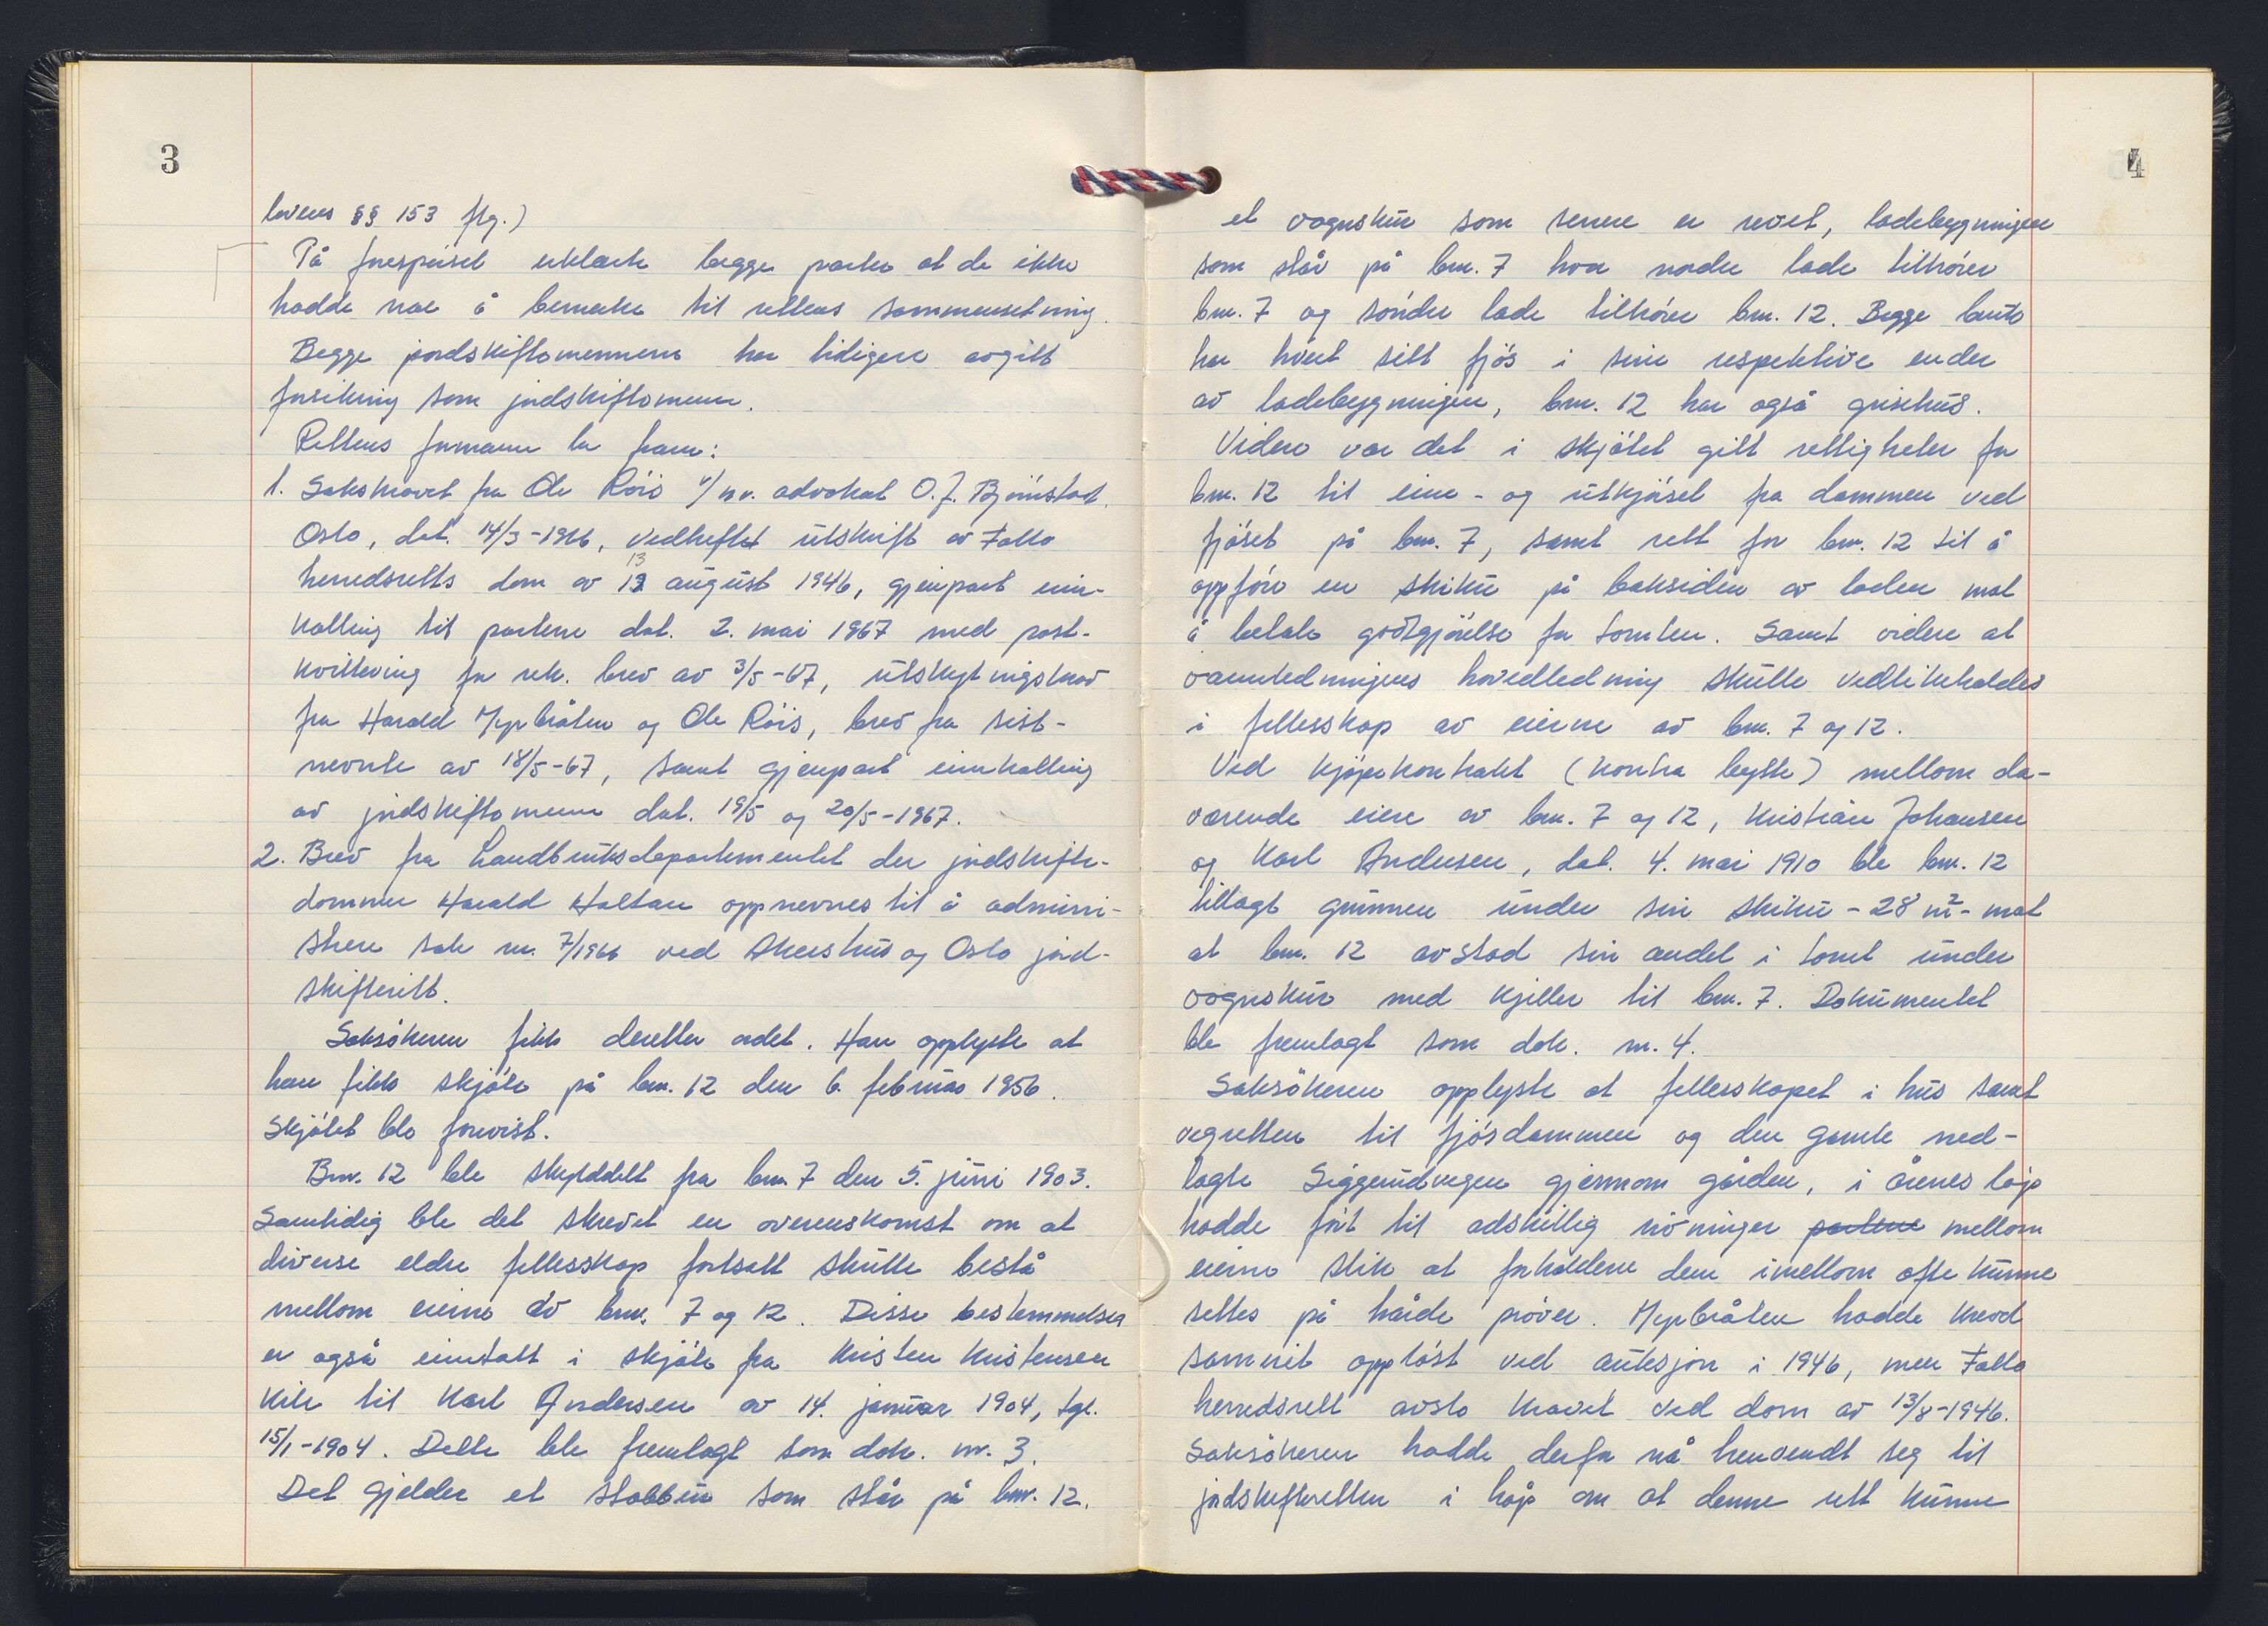 3
lovens §§ 153 flg.)
På forespørsel erklærte begge parter at de ikke
hadde noe å bemerke til rettens sammensetning.
Begge jordskiftemennene har tidligere avgitt
forsikring som jordskiftemenn.
Rettens formann la fram:
1. Sakskravet fra Ole Röis v/ advokat O.J. Bjørnstad.
Oslo, dat. 14/3-1966, vedheftet utskrift av Follo
herredsretts dom av 13 august 1946, gjenpart inn-
kalling til partene dat. 2. mai 1967 med post-
kvittering for rek. brev av 3/5-67, utskytingskrav
fra Harald Myrbråten og Ole Röis, brev fra sist-
nevnte av 18/5-67, samt gjenpart innkalling
av jordskiftemenn dat. 19/5 og 20/5-1967.
2. Brev fra Landbruksdepartementet der jordskifte-
dommer Harald Haltan oppnevnes til å admini-
strere sak nr. 7/1966 ved Akershus og Oslo jord-
skifterett.
Saksökeren fikk deretter ordet. Han opplyste at
han fikk skjöte på bnr. 12 den 6. februar 1956.
Skjötet ble forevist.
Bnr. 12 ble skylddelt fra bnr. 7 den 5. juni 1903.
Samtidig ble det skrevet en overenskomst om at
diverse eldre fellesskap fortsatt skulle bestå
mellom eierne av bnr. 7 og 12. Disse bestemmelser
er også inntatt i skjöte fra Kristen Kristensen
Kile til Karl Andersen av 14. januar 1904, tgl.
15/1-1904. Dette ble fremlagt som dok. nr. 3.
Det gjelder et stabbur som står på bnr. 12.
4
et vognskur som senere er revet, ladebygningen
som står på bnr. 7 hvor nordre lade tilhörer
bnr. 7 og söndre lade tilhörer bnr. 12. Begge bruk
har hvert sitt fjös i sine respektive ender
av ladebygningen, bnr. 12 har også grisehus.
Videre var det i skjötet gitt rettigheter for
bnr. 12 til inn- og utkjörsel fra dammen ved
fjöset på bnr. 7, samt rett for bnr. 12 til å
oppföre en skikü på baksiden av laden mot
å betale godtgjörelse for tomten. Samt videre at
vannledningens hovedledning skulle vedlikeholdes
i fellesskap av eierne av bnr. 7 og 12.
Ved kjöpekontrakt (kontra bytte) mellom da-
værende eiere av bnr. 7 og 12, Kristian Johansen
og Karl Andersen, dat. 4. mai 1910 ble bnr. 12
tillagt grunnen under sin skikü - 28 m² - mot
at bnr. 12 avstod sin andel i tomt under
vognskur med kjeller til bnr. 7. Dokumentet
ble fremlagt som dok. nr. 4.
Saksökeren opplyste at fellesskapet i hus samt
vegretten til fjösdammen og den gamle ned-
lagte Siggerudvegen gjennom gården, i årenes löp
hadde fört til adskillig rivninger partene mellom
eierne slik at forholdene dem imellom ofte kunne
settes på hårde pröver. Myrbråten hadde krevd
sameiet opplöst ved auksjon i 1946, men Follo
herredsrett avslo kravet ved dom av 13/8-1946.
Saksökeren hadde derfor nå henvendt seg til
jordskifteretten i håp om at denne rett kunne